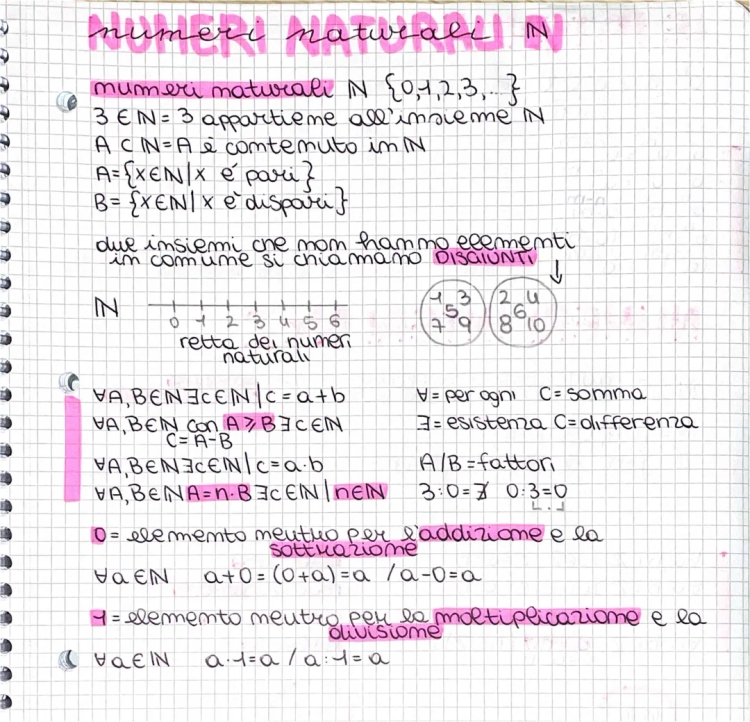 numeri naturali ℕ
numeri naturali ℕ {0,1,2,3,...}
3 ∈ ℕ = 3 appartiene all'insieme ℕ
A ⊂ ℕ = A è contenuto in ℕ
A = {x∈ℕ | x é pari}
B = {x∈ℕ | x è dispari}
due insiemi che non hanno elementi
in comune si chiamano DISGIUNTI
ℕ
0 1 2 3 4 5 6
retta dei numeri
naturali
1 3
5
7 9
2 4
6
8 10
∀A,B∈ℕ∃c∈ℕ | c = a+b
∀ = per ogni C = somma
∀A,B∈ℕ con A ≥ B ∃ c∈ℕ
C = A-B
∃ = esistenza C = differenza
∀A,B∈ℕ∃c∈ℕ | c = a·b
A/B = fattori
∀A,B∈ℕ A=n·B ∃c∈ℕ | n∈ℕ
3:0=∄ 0:3=0
0 = elemento neutro per l'addizione e la
sottrazione
∀a∈ℕ a+0=(0+a)=a / a-0=a
1 = elemento neutro per la moltiplicazione e la
divisione
∀a∈ℕ a·1=a / a:1=a